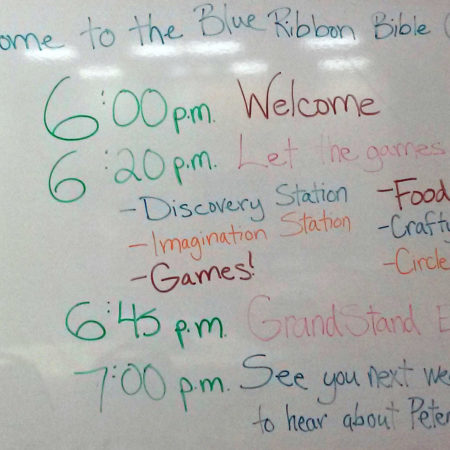 ome to the Blue Ribbon Bible
6:00 p.m. Welcome
6:20 p.m. Let the games
-Discovery Station -Food
-Imagination Station -Craft
-Games! -Circle
6:45 p.m. GrandStand E
7:00 p.m. See you next we
to hear about Peter